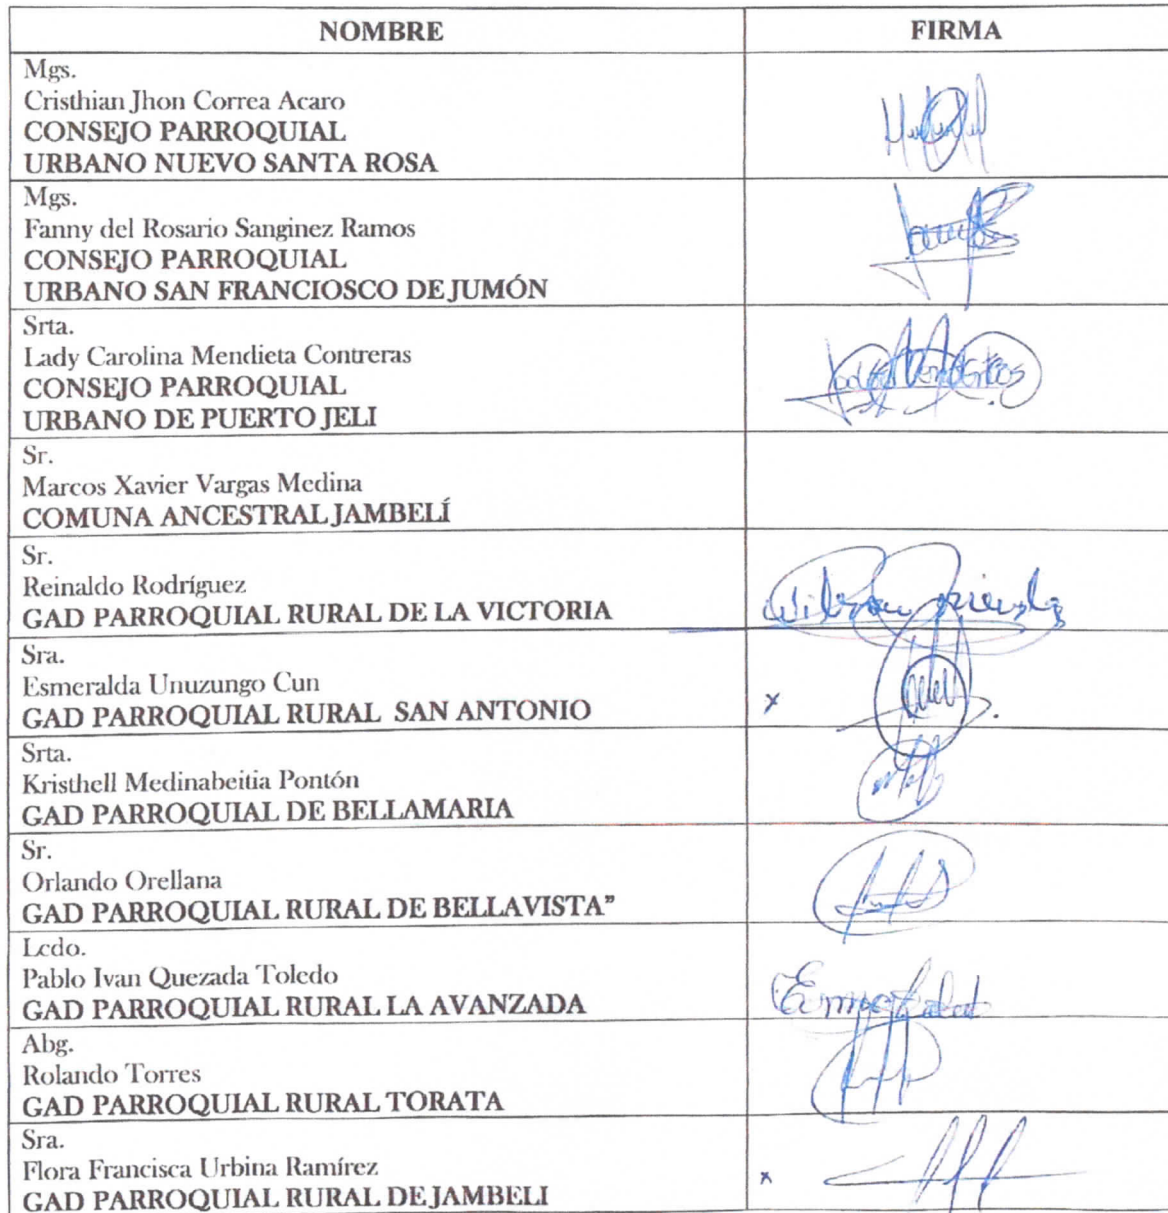 NOMBRE FIRMA
Mgs.
Cristhian Jhon Correa Acaro
CONSEJO PARROQUIAL
URBANO NUEVO SANTA ROSA
Mgs.
Fanny del Rosario Sanginez Ramos
CONSEJO PARROQUIAL
URBANO SAN FRANCIOSCO DE JUMÓN
Srta.
Lady Carolina Mendieta Contreras
CONSEJO PARROQUIAL
URBANO DE PUERTO JELI
Sr.
Marcos Xavier Vargas Medina
COMUNA ANCESTRAL JAMBELÍ
Sr.
Reinaldo Rodríguez
GAD PARROQUIAL RURAL DE LA VICTORIA
Sra.
Esmeralda Unuzungo Cun
GAD PARROQUIAL RURAL SAN ANTONIO
x
Srta.
Kristhell Medinabeitia Pontón
GAD PARROQUIAL DE BELLAMARIA
Sr.
Orlando Orellana
GAD PARROQUIAL RURAL DE BELLAVISTA”
Lcdo.
Pablo Ivan Quezada Toledo
GAD PARROQUIAL RURAL LA AVANZADA
Abg.
Rolando Torres
GAD PARROQUIAL RURAL TORATA
Sra.
Flora Francisca Urbina Ramírez
GAD PARROQUIAL RURAL DE JAMBELI
x